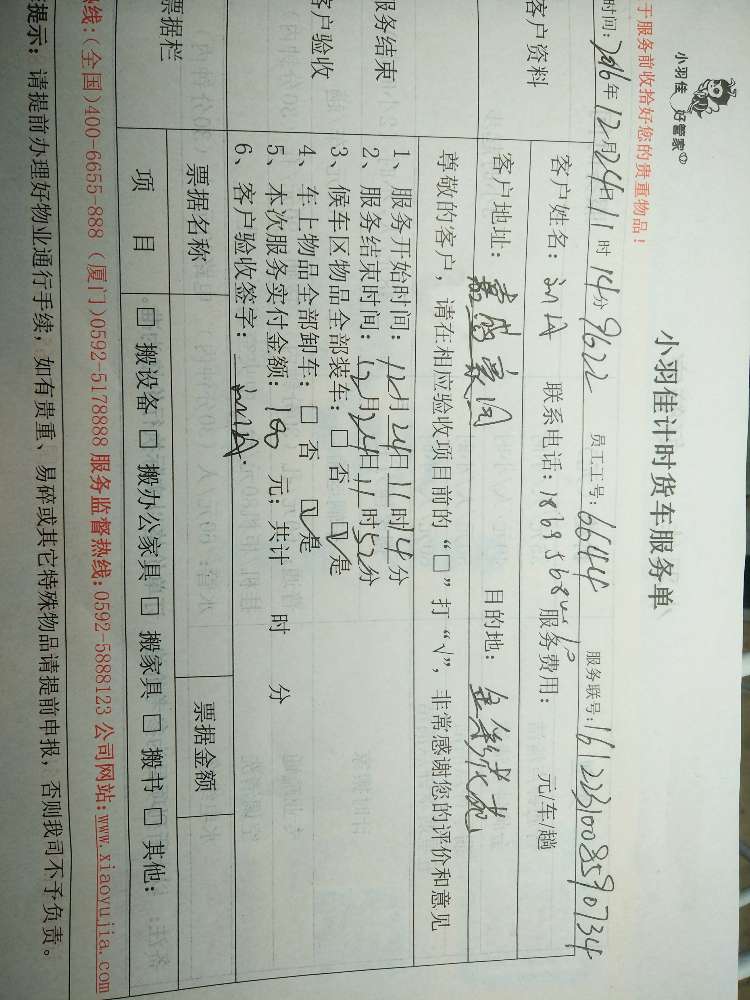 小羽佳 好管家
小羽佳计时货车服务单
于服务前收拾好您的贵重物品！
时间：2016年12月24日11时14分 9622 员工工号：6644 服务联号：1612231008590734
客户资料
客户姓名： 联系电话： 服务费用： 元/车/趟
客户地址： 目的地：
尊敬的客户，请在相应验收项目前的“□”打“√”，非常感谢您的评价和意见
服务结束
客户验收
1、服务开始时间：12月24日11时14分
2、服务结束时间：12月24日11时52分
3、候车区物品全部装车：□ 否 ☑是
4、车上物品全部卸车：□ 否 ☑是
5、本次服务实付金额：100 元；共计 时 分
6、客户验收签字：
票据栏
票据名称 票据金额
项 目 □ 搬设备 □ 搬办公家具 □ 搬家具 □ 搬书 □ 其他：
热线：（全国）400-6655-888（厦门）0592-5178888 服务监督热线：0592-5888123 公司网站：www.xiaoyujia.com
提示：请提前办理好物业通行手续，如有贵重、易碎或其它特殊物品请提前申报，否则我司不予负责。